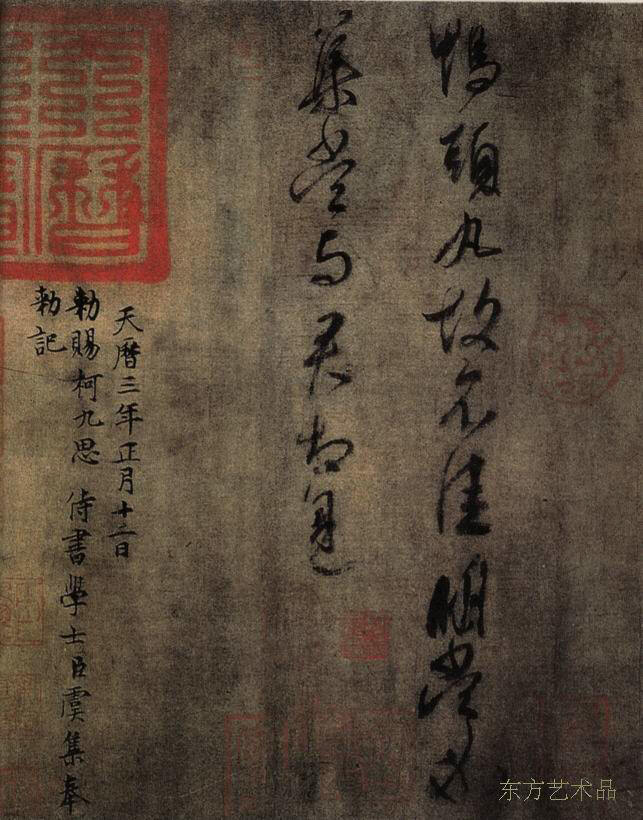 鴨頭丸故不佳明當必
集當与君相見
天曆三年正月十二日
勅賜柯九思 侍書學士臣虞集奉
勅記
天曆
东方艺术品